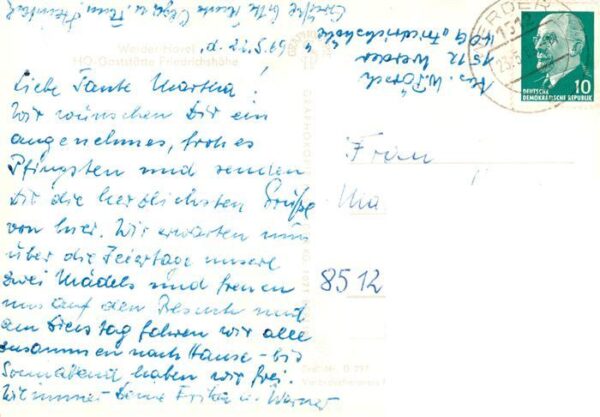 Grüße bitte
Werder-Havel
HO-Gaststätte Friedrichshöhe
, d. 22.5.69
Liebe Tante Martha!
Wir wünschen Dir ein
angenehmes, frohes
Pfingsten und senden
Dir die herzlichsten Grüße
von hier. Wir erwarten nun
über die Feiertage unsere
zwei Mädels und freuen
uns auf den Besuch und
am Dienstag fahren wir alle
zusammen nach Hause - bis
Sonnabend haben wir frei.
Wie immer Deine u. Werner
Abs. W.
1512 Werder
HOG „Friedrichshöhe"
WERDER
1512
10
DEUTSCHE
DEMOKRATISCHE REPUBLIK
Frau
Ma
8512